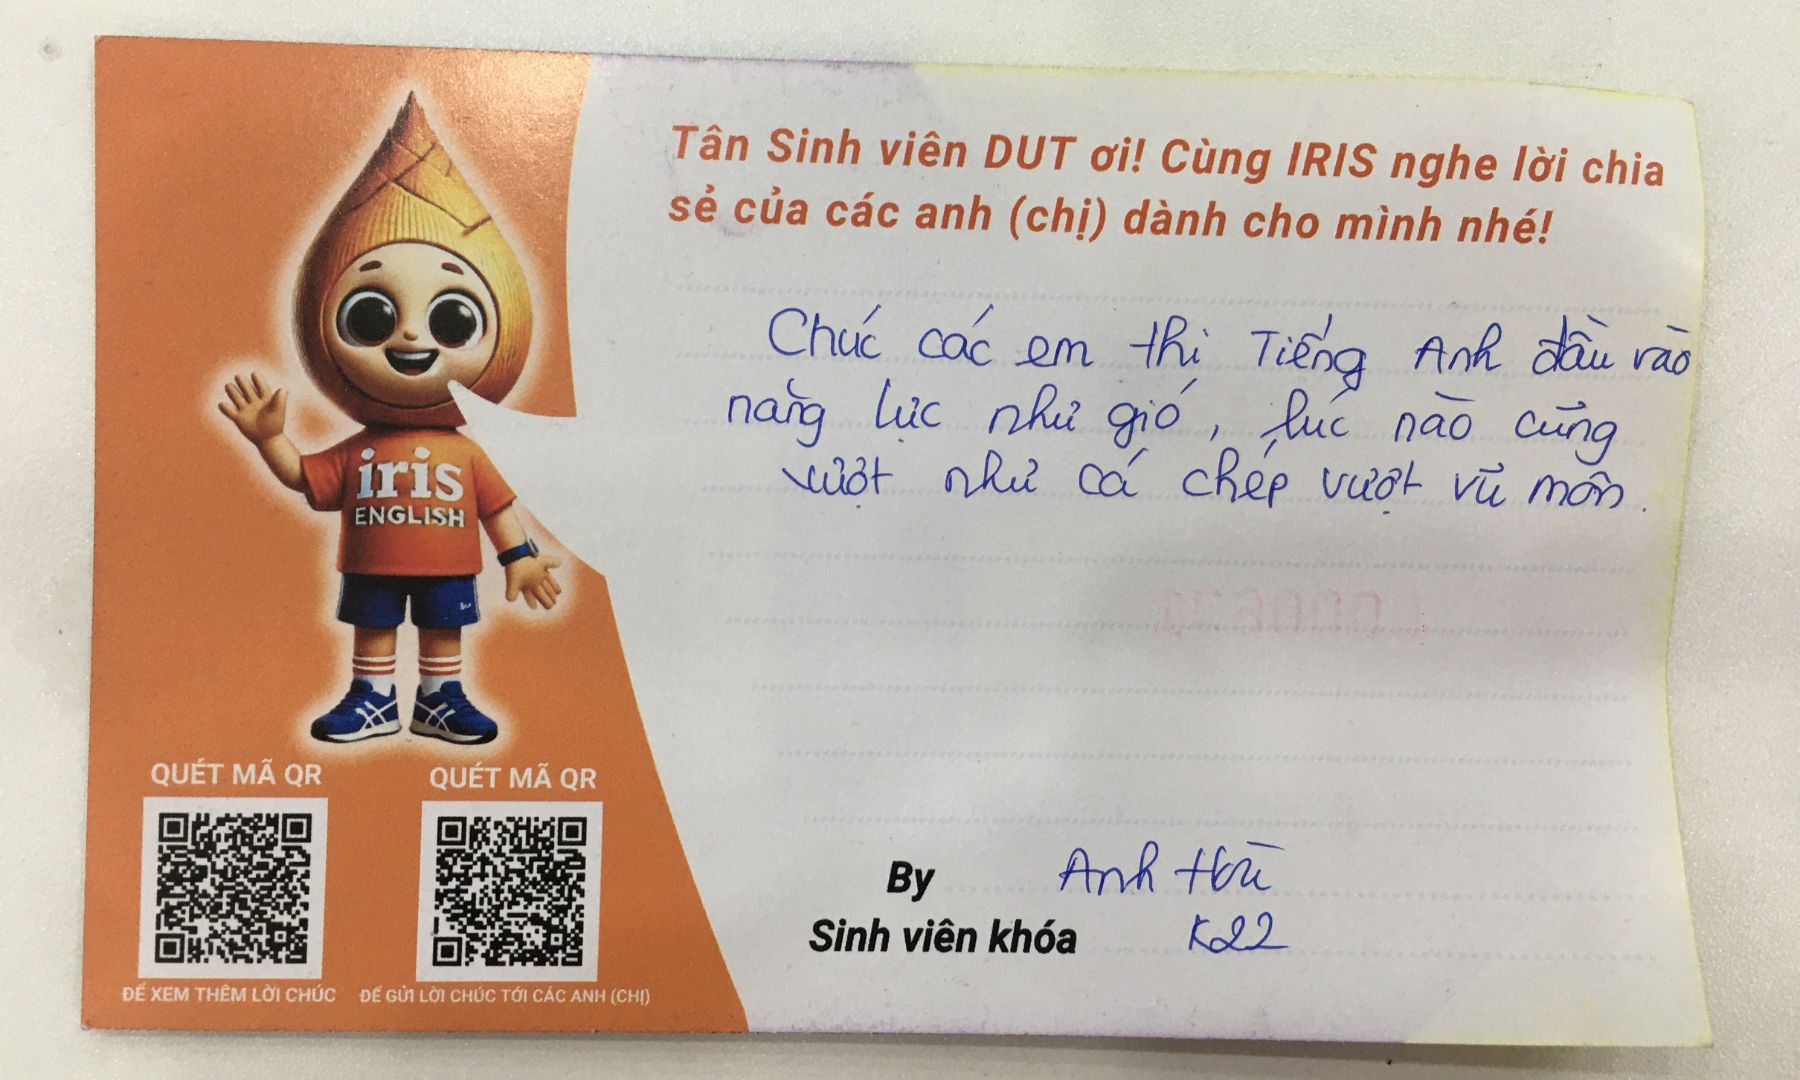 Tân Sinh viên DUT ơi! Cùng IRIS nghe lời chia
sẻ của các anh (chị) dành cho mình nhé!
Chúc các em thi Tiếng Anh đầu vào
năng lực như gió, lúc nào cũng
vượt như cá chép vượt vũ môn.
iris
ENGLISH
QUÉT MÃ QR
QUÉT MÃ QR
ĐỂ XEM THÊM LỜI CHÚC
ĐỂ GỬI LỜI CHÚC TỚI CÁC ANH (CHỊ)
By Anh
Sinh viên khóa K22